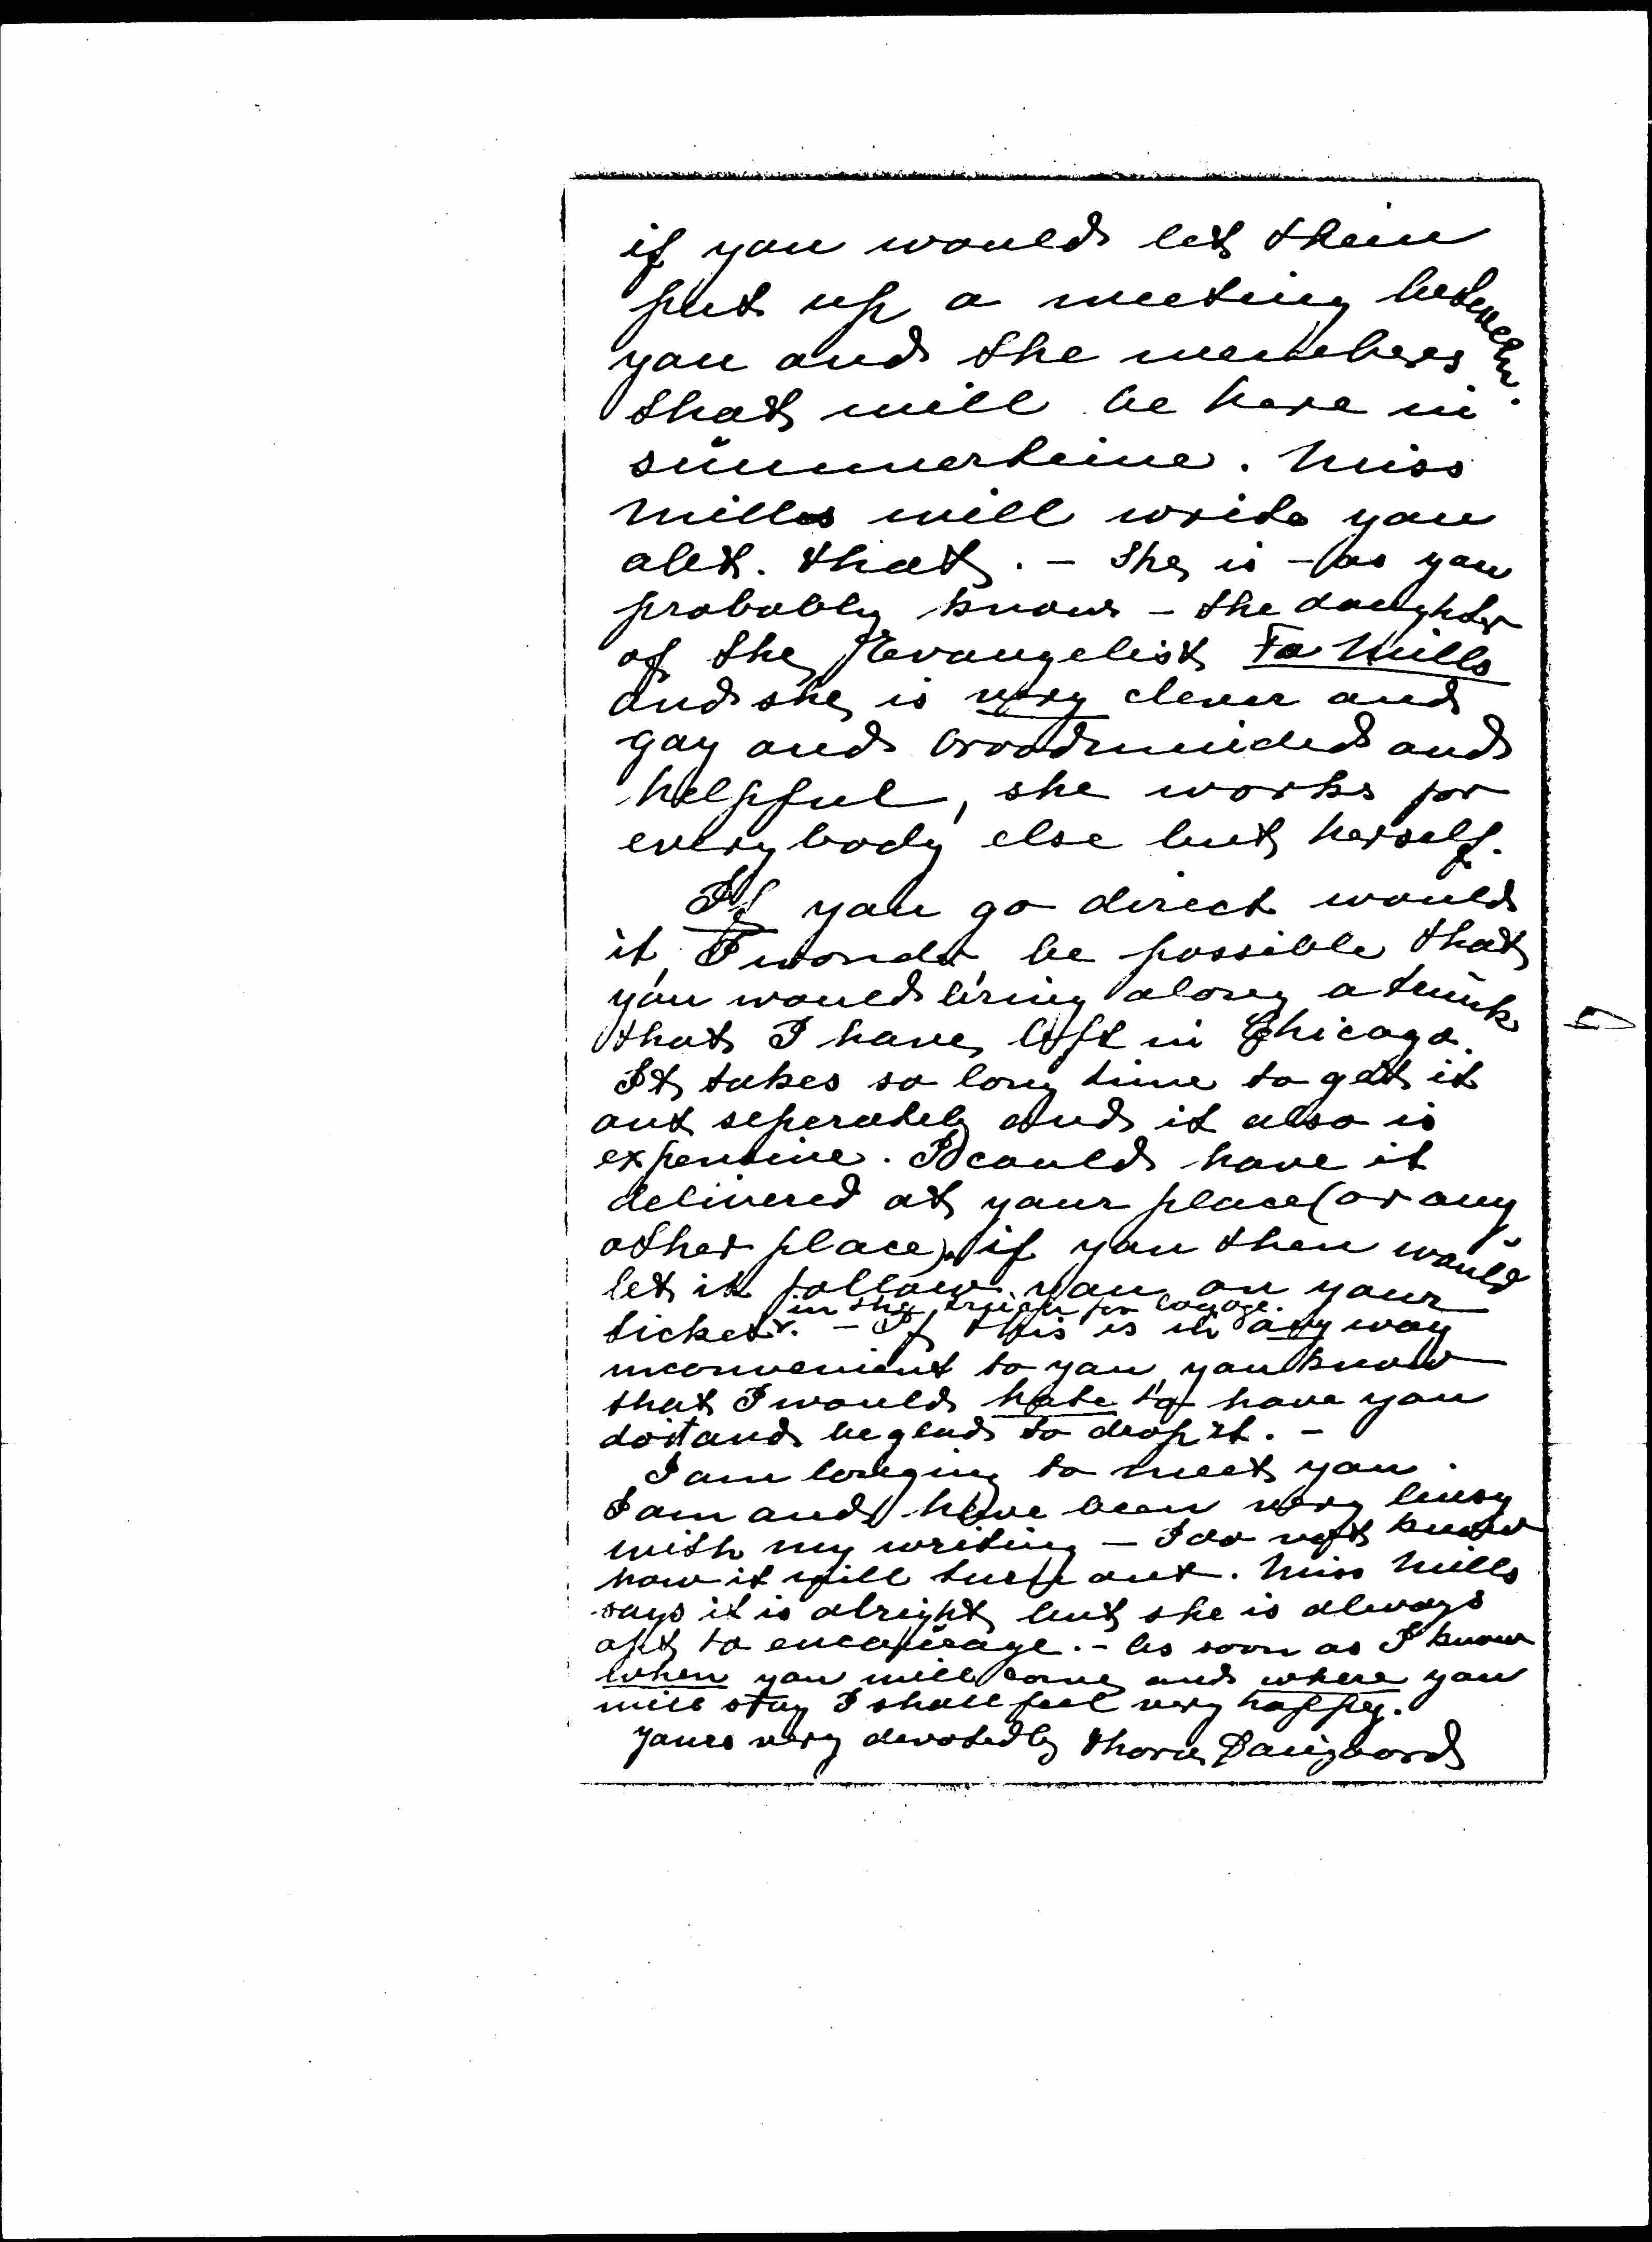 if you would let them
put up a meeting between
you and the members
that will be here in
summertime. Miss
Mills will write you
abt. that. - She is - as you
probably know - the daughter
of the Evangelist Fa Mills
and she is very clever and
gay and broadminded and
helpful, she works for
everybody else but herself.
If you go direct would
it, I wonder, be possible that
you would bring along a trunk
that I have left in Chicago.
It takes so long time to get it
out seperately and it also is
expensive. I could have it
delivered at your place (or any
other place) if you then would
let it follow you on your
in the for bagage.
ticket. - If this is in any way
inconvenient to you, you know
that I would hate to have you
do it and be glad to drop it. -
I am longing to meet you.
I am and have been very busy
with my writing - I do not know
how it will turn out. Miss Mills
says it is alright but she is always
apt to encourage. - As soon as I know
when you will come and where you
will stay I shall feel very happy.
Yours very devotedly Thora Daugaard